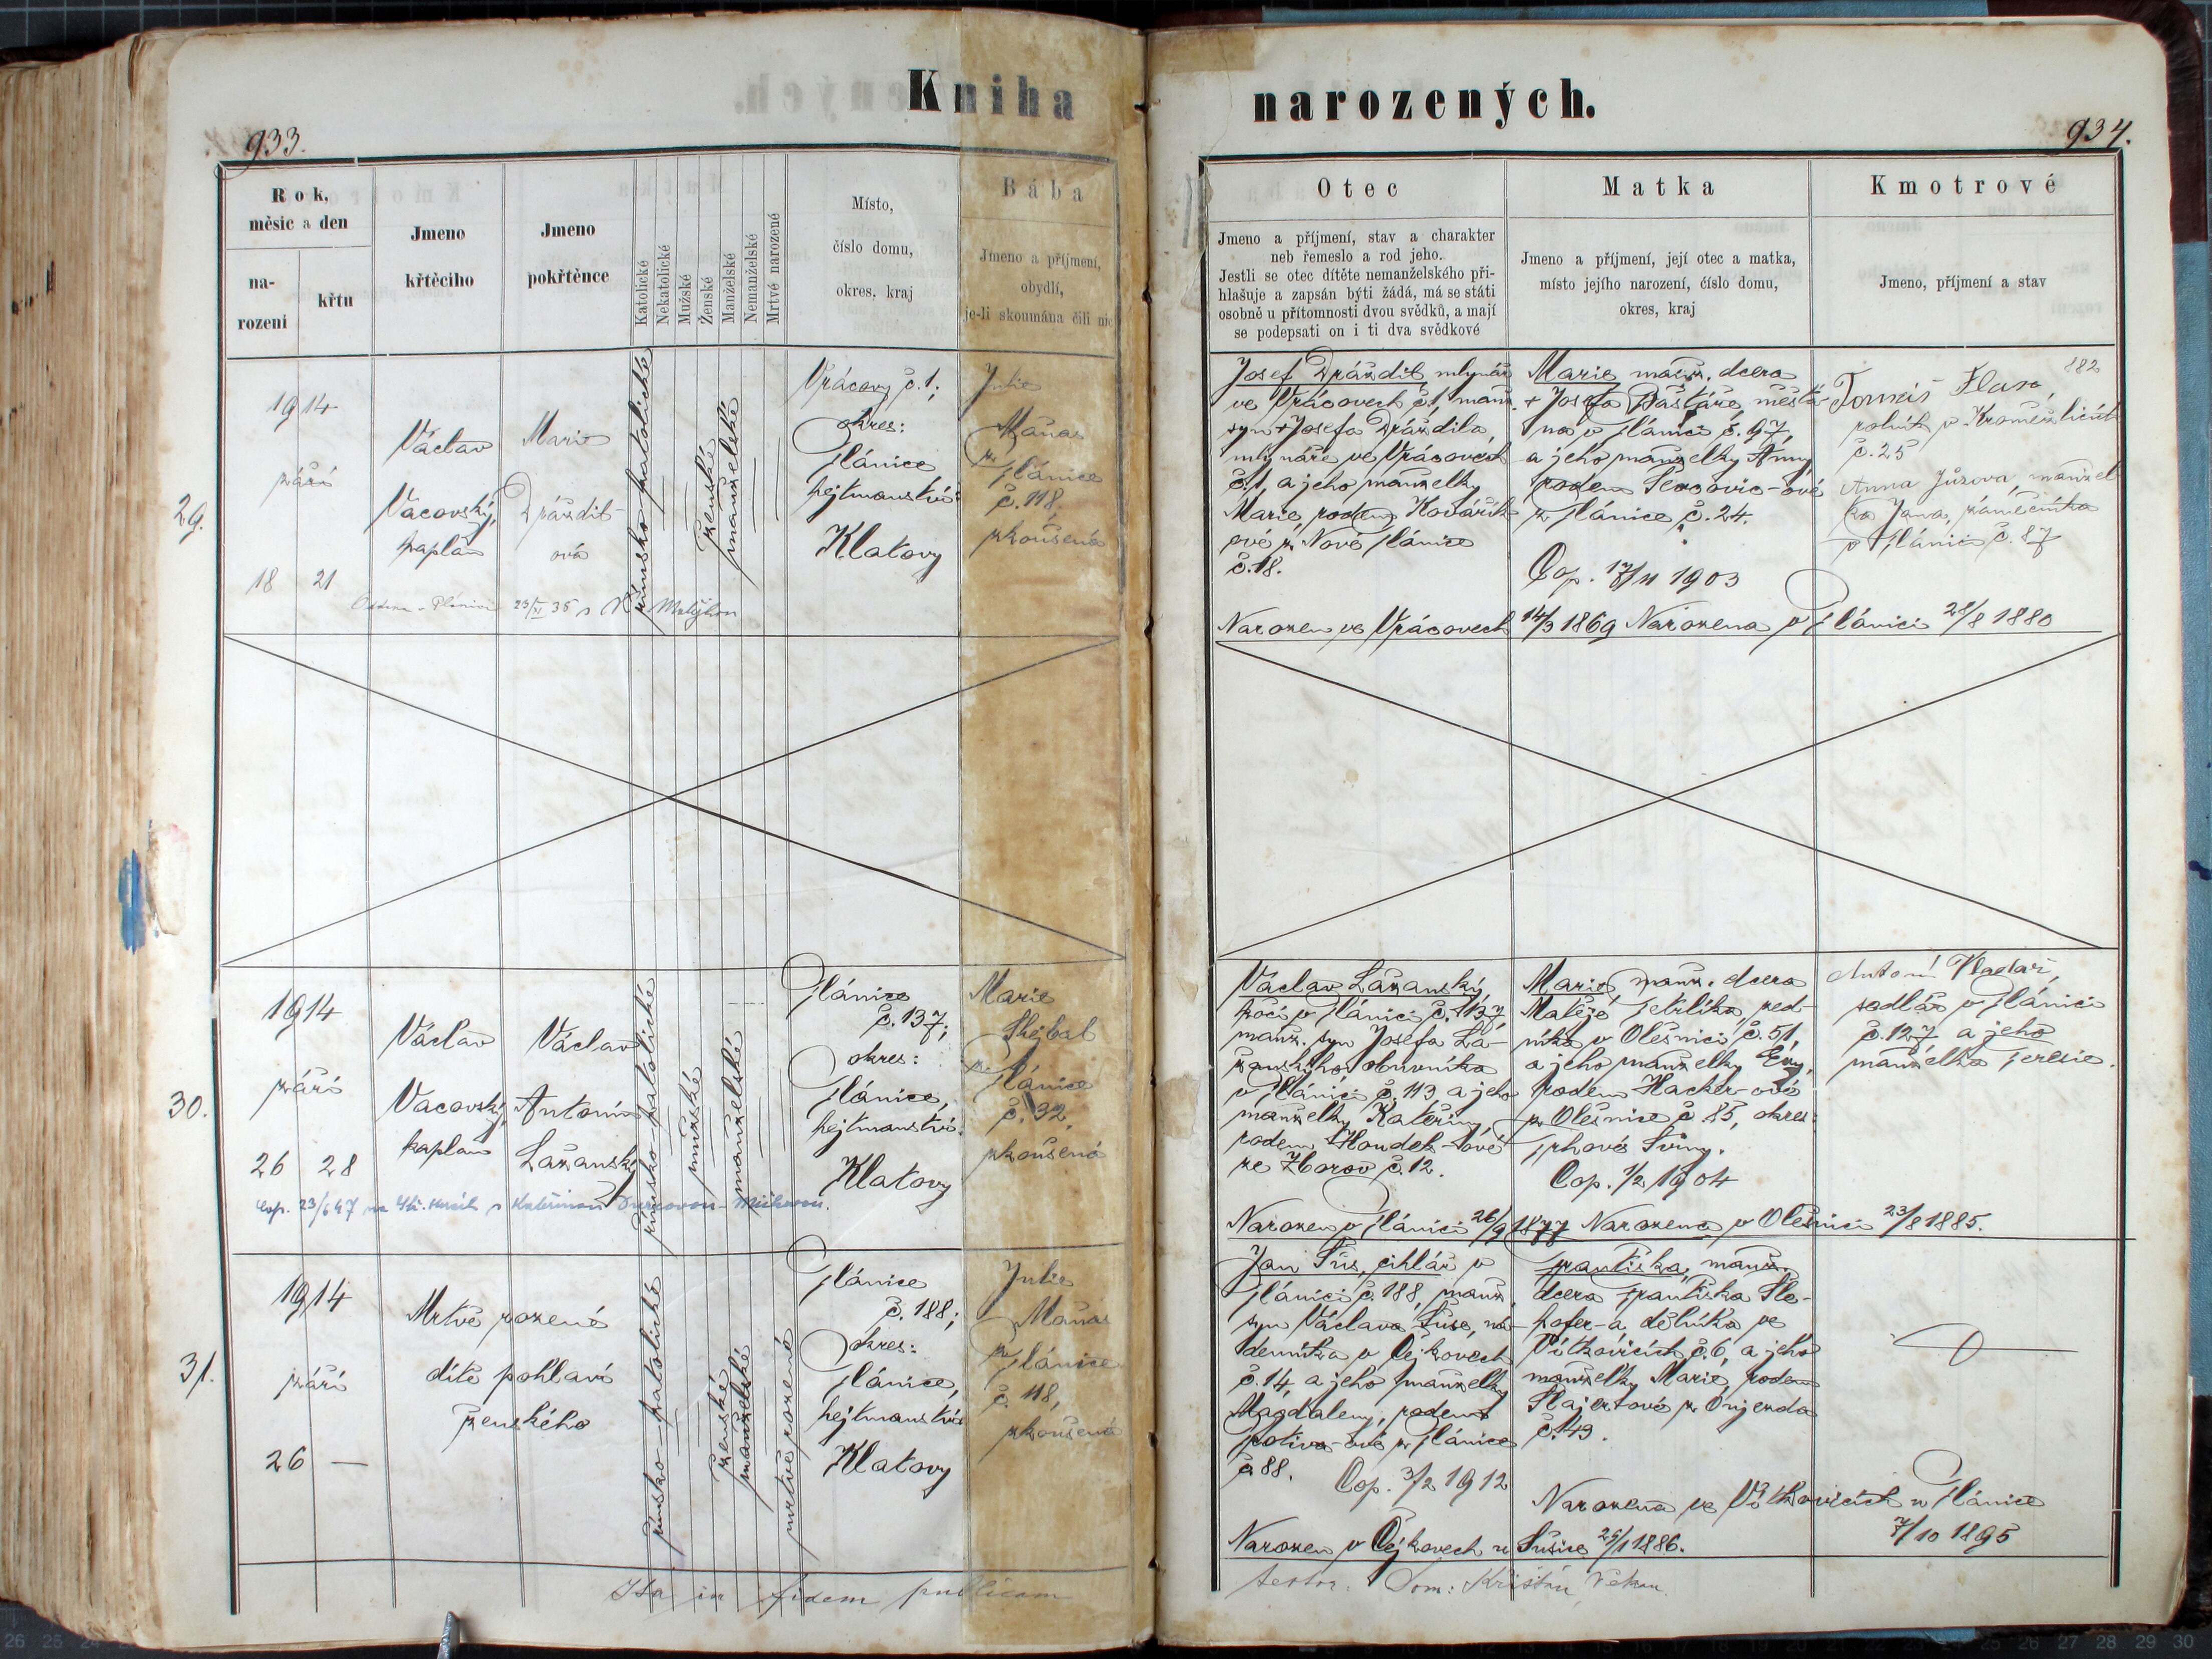 Kniha narozených.
933.
934.
Rok,
měsíc a den
na-
rozeni
křtu
Jmeno
křtěcího
Jmeno
pokřtěnce
Katolické
Nekatolické
Mužské
Ženské
Manželské
Nemanželské
Mrtvé narozené
Místo,
číslo domu,
okres, kraj
Bába
Jmeno a příjmení,
obydlí,
je-li skoumána čili nic
Otec
Jmeno a příjmení, stav a charakter
neb řemeslo a rod jeho.
Jestli se otec dítěte nemanželského při-
hlašuje a zapsán býti žádá, má se státi
osobně u přítomnosti dvou svědků, a mají
se podepsati on i ti dva svědkové
Matka
Jmeno a příjmení, její otec a matka,
místo jejího narození, číslo domu,
okres, kraj
Kmotrové
Jmeno, příjmení a stav
29.
1914
září
18 21
Václav
Vacovský,
kaplan
Marie
Dráždil-
ová
římsko katolické
ženské
manželské
Vrácovy č. 1,
okres:
Plánice
hejtmanství:
Klatovy
Julie
Maňas
z Plánice
č. 118,
zkoušená
Plánici 23/XI 35 s
Josef Dráždil, mlynář
ve Vrácovech č. 1, manž.
syn + Josefa Dráždila,
mlynáře ve Vrácovech
č. 1, a jeho manželky
Marie, rodem Kovářík-
ové z Nové Plánice
č. 18.
Narozen ve Vrácovech 14/3 1869
Marie manž. dcera
+ Josefa Baštáře, měšťa-
na v Plánici č. 97,
a jeho manželky Anny,
rodem
z Plánice č. 24.
Cop. 17/11 1903
Narozena v Plánici 28/8 1880
882
Tomáš
rolník v
č. 25
Anna Jůzova, manžel
ka Jana,
v Plánici č. 87
30.
1914
září
26 28
Václav
Vacovský,
kaplan
Václav
Antonín
Lažanský
římsko-katolické
mužské
manželské
Plánice
č. 137;
okres:
Plánice,
hejtmanství:
Klatovy
Marie
Shejbal
z Plánice
č. 32,
zkoušená
Cop. 23/6 47 s Kateřinou
Václav Lažanský
kočí v Plánici č. 137,
manž. syn Josefa La-
žanského, obuvníka
v Plánici č. 113, a jeho
manželky Kateřiny,
rodem Houdek-ové
ze Zborov č. 12.
Narozen v Plánici 26/9 1877
Marie manž. dcera
Matěje Jetelíka, zed-
níka v Olešnici č. 51,
a jeho manželky Evy,
rodem Hacker-ové
z Olešnice č. 85, okres:
Trhové Sviny.
Cop. 1/2 1904
Narozena v Olešnici 23/8 1885.
Antonín
sedlář v Plánici
č. 127 a jeho
manželka Terezie.
31.
1914
září
26 —
Mrtvě rozené
dítě pohlaví
ženského
římsko-katolické
ženské
manželské
mrtvě rozené
Plánice
č. 188;
okres:
Plánice,
hejtmanství
Klatovy
Julie
Maňas
z Plánice
č. 118,
zkoušená
Jan Šůs, cihlář v
Plánici č. 188, manž.
syn Václava Šůse, ná-
denníka v Čejkovech
č. 14, a jeho manželky
Magdaleny, rodem
z Plánice
č. 88. Cop. 3/2 1912
Narozen v Čejkovech u Sušice 25/1 1886.
Františka, manž.
dcera Františka Ste-
hofer-a dělníka ve
Vítkovicích č. 6, a jeho
manželky Marie, rodem
č. 49.
Narozena ve Vítkovicích u Plánice
7/10 1895
Ita in fidem publicam
testor. Dom: Krištůf, Děkan